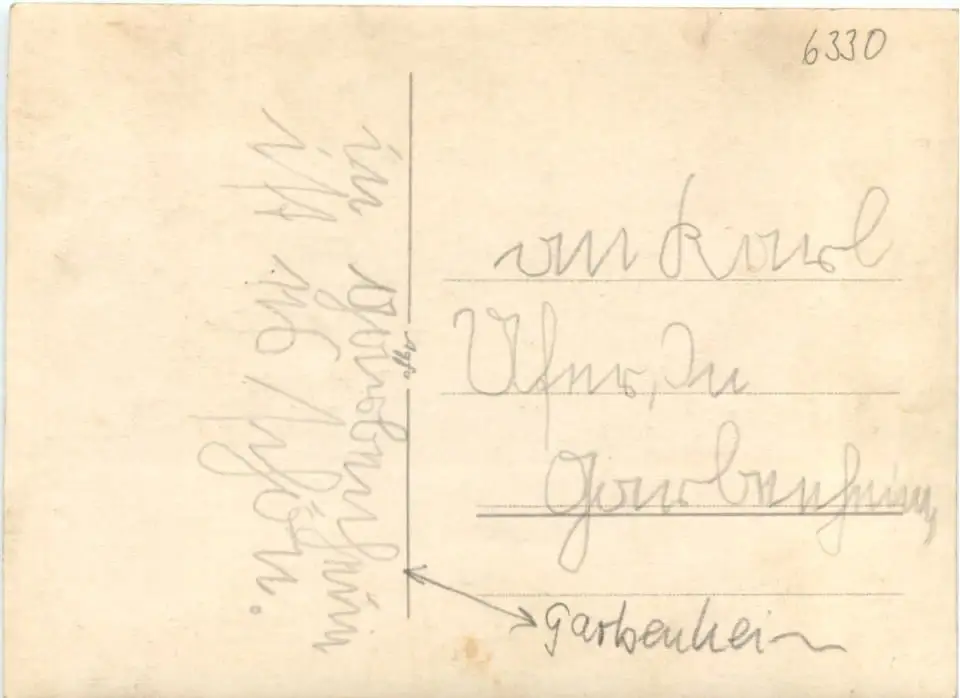 6330
in Garbenheim
ist es schön.
an Karl
Ufer, In
Garbenheim
Garbenheim